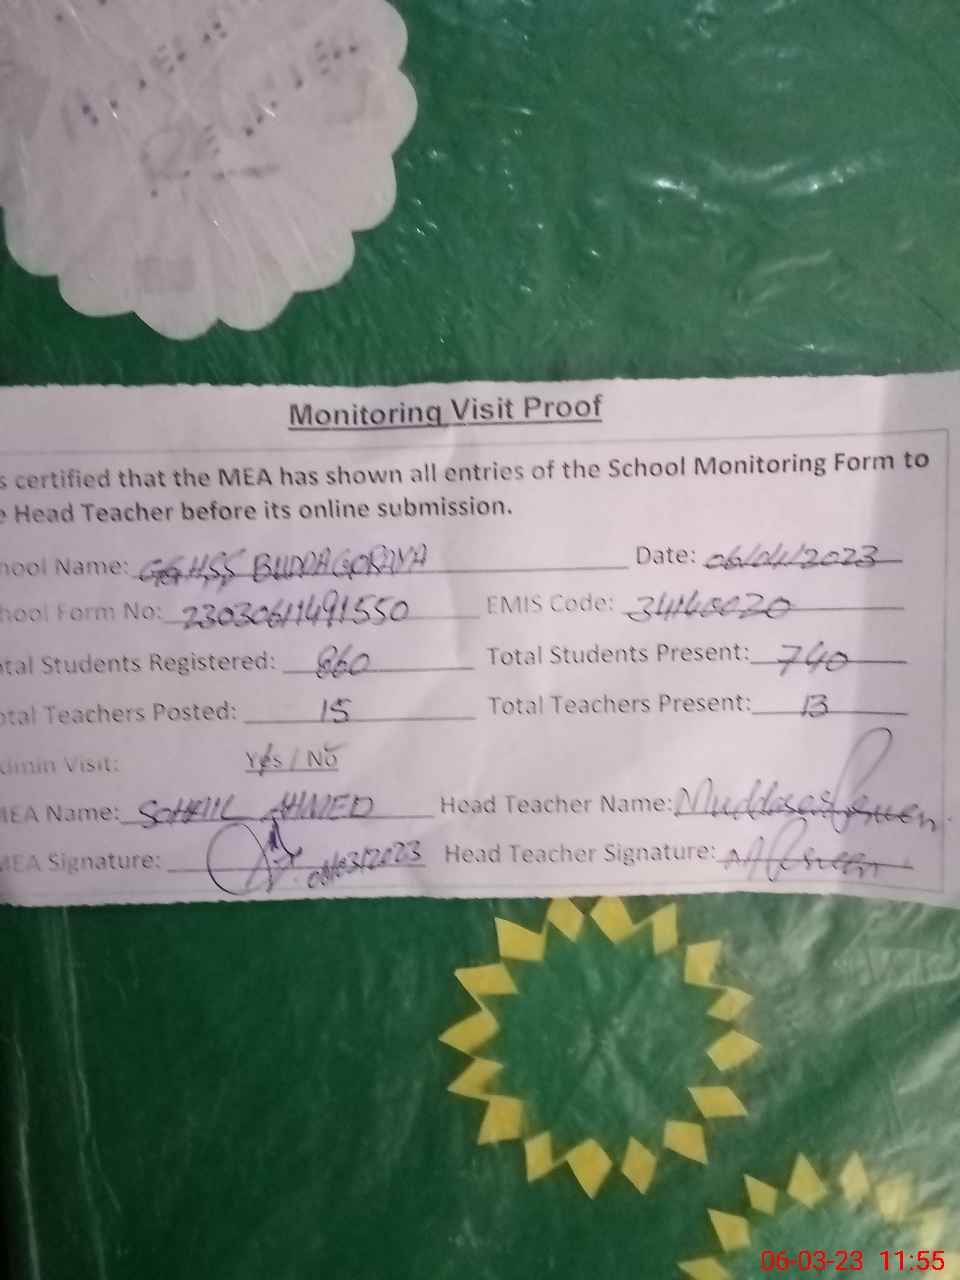 Monitoring Visit Proof
s certified that the MEA has shown all entries of the School Monitoring Form to
e Head Teacher before its online submission.
hool Name: GGHSS BUDDAGORAYA Date: 06/04/2023
hool Form No: 23030611491550 EMIS Code: 34140020
otal Students Registered: 860 Total Students Present: 740
otal Teachers Posted: 15 Total Teachers Present: 13
dmin Visit: Yes / No
MEA Name: SOHAIL AHMED Head Teacher Name:
MEA Signature: Head Teacher Signature:
06-03-23 11:55